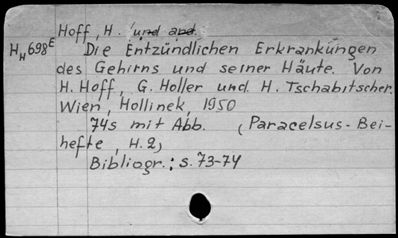 Hoff, H. und and.
H_H 698^E Die Entzündlichen Erkrankungen
des Gehirns und seiner Häute. Von
H. Hoff, G. Holler und H. Tschabitscher.
Wien, Hollinek, 1950
74s mit Abb. (Paracelsus-Bei-
hefte, H.2)
Bibliogr.: s.73-74